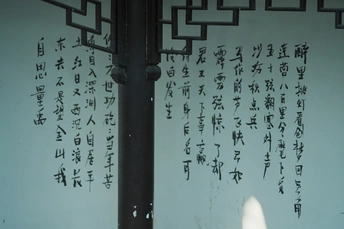 醉里挑灯看剑梦回吹角
连营八百里分麾下炙
五十弦翻塞外声
沙场秋点兵
马作的卢飞快弓如
霹雳弦惊了却
君王天下事赢
得生前身后名可
怜白发生
当年苦
自入深渊人自居平
红日又西沉白浪长
东去不是望金山我
自思量